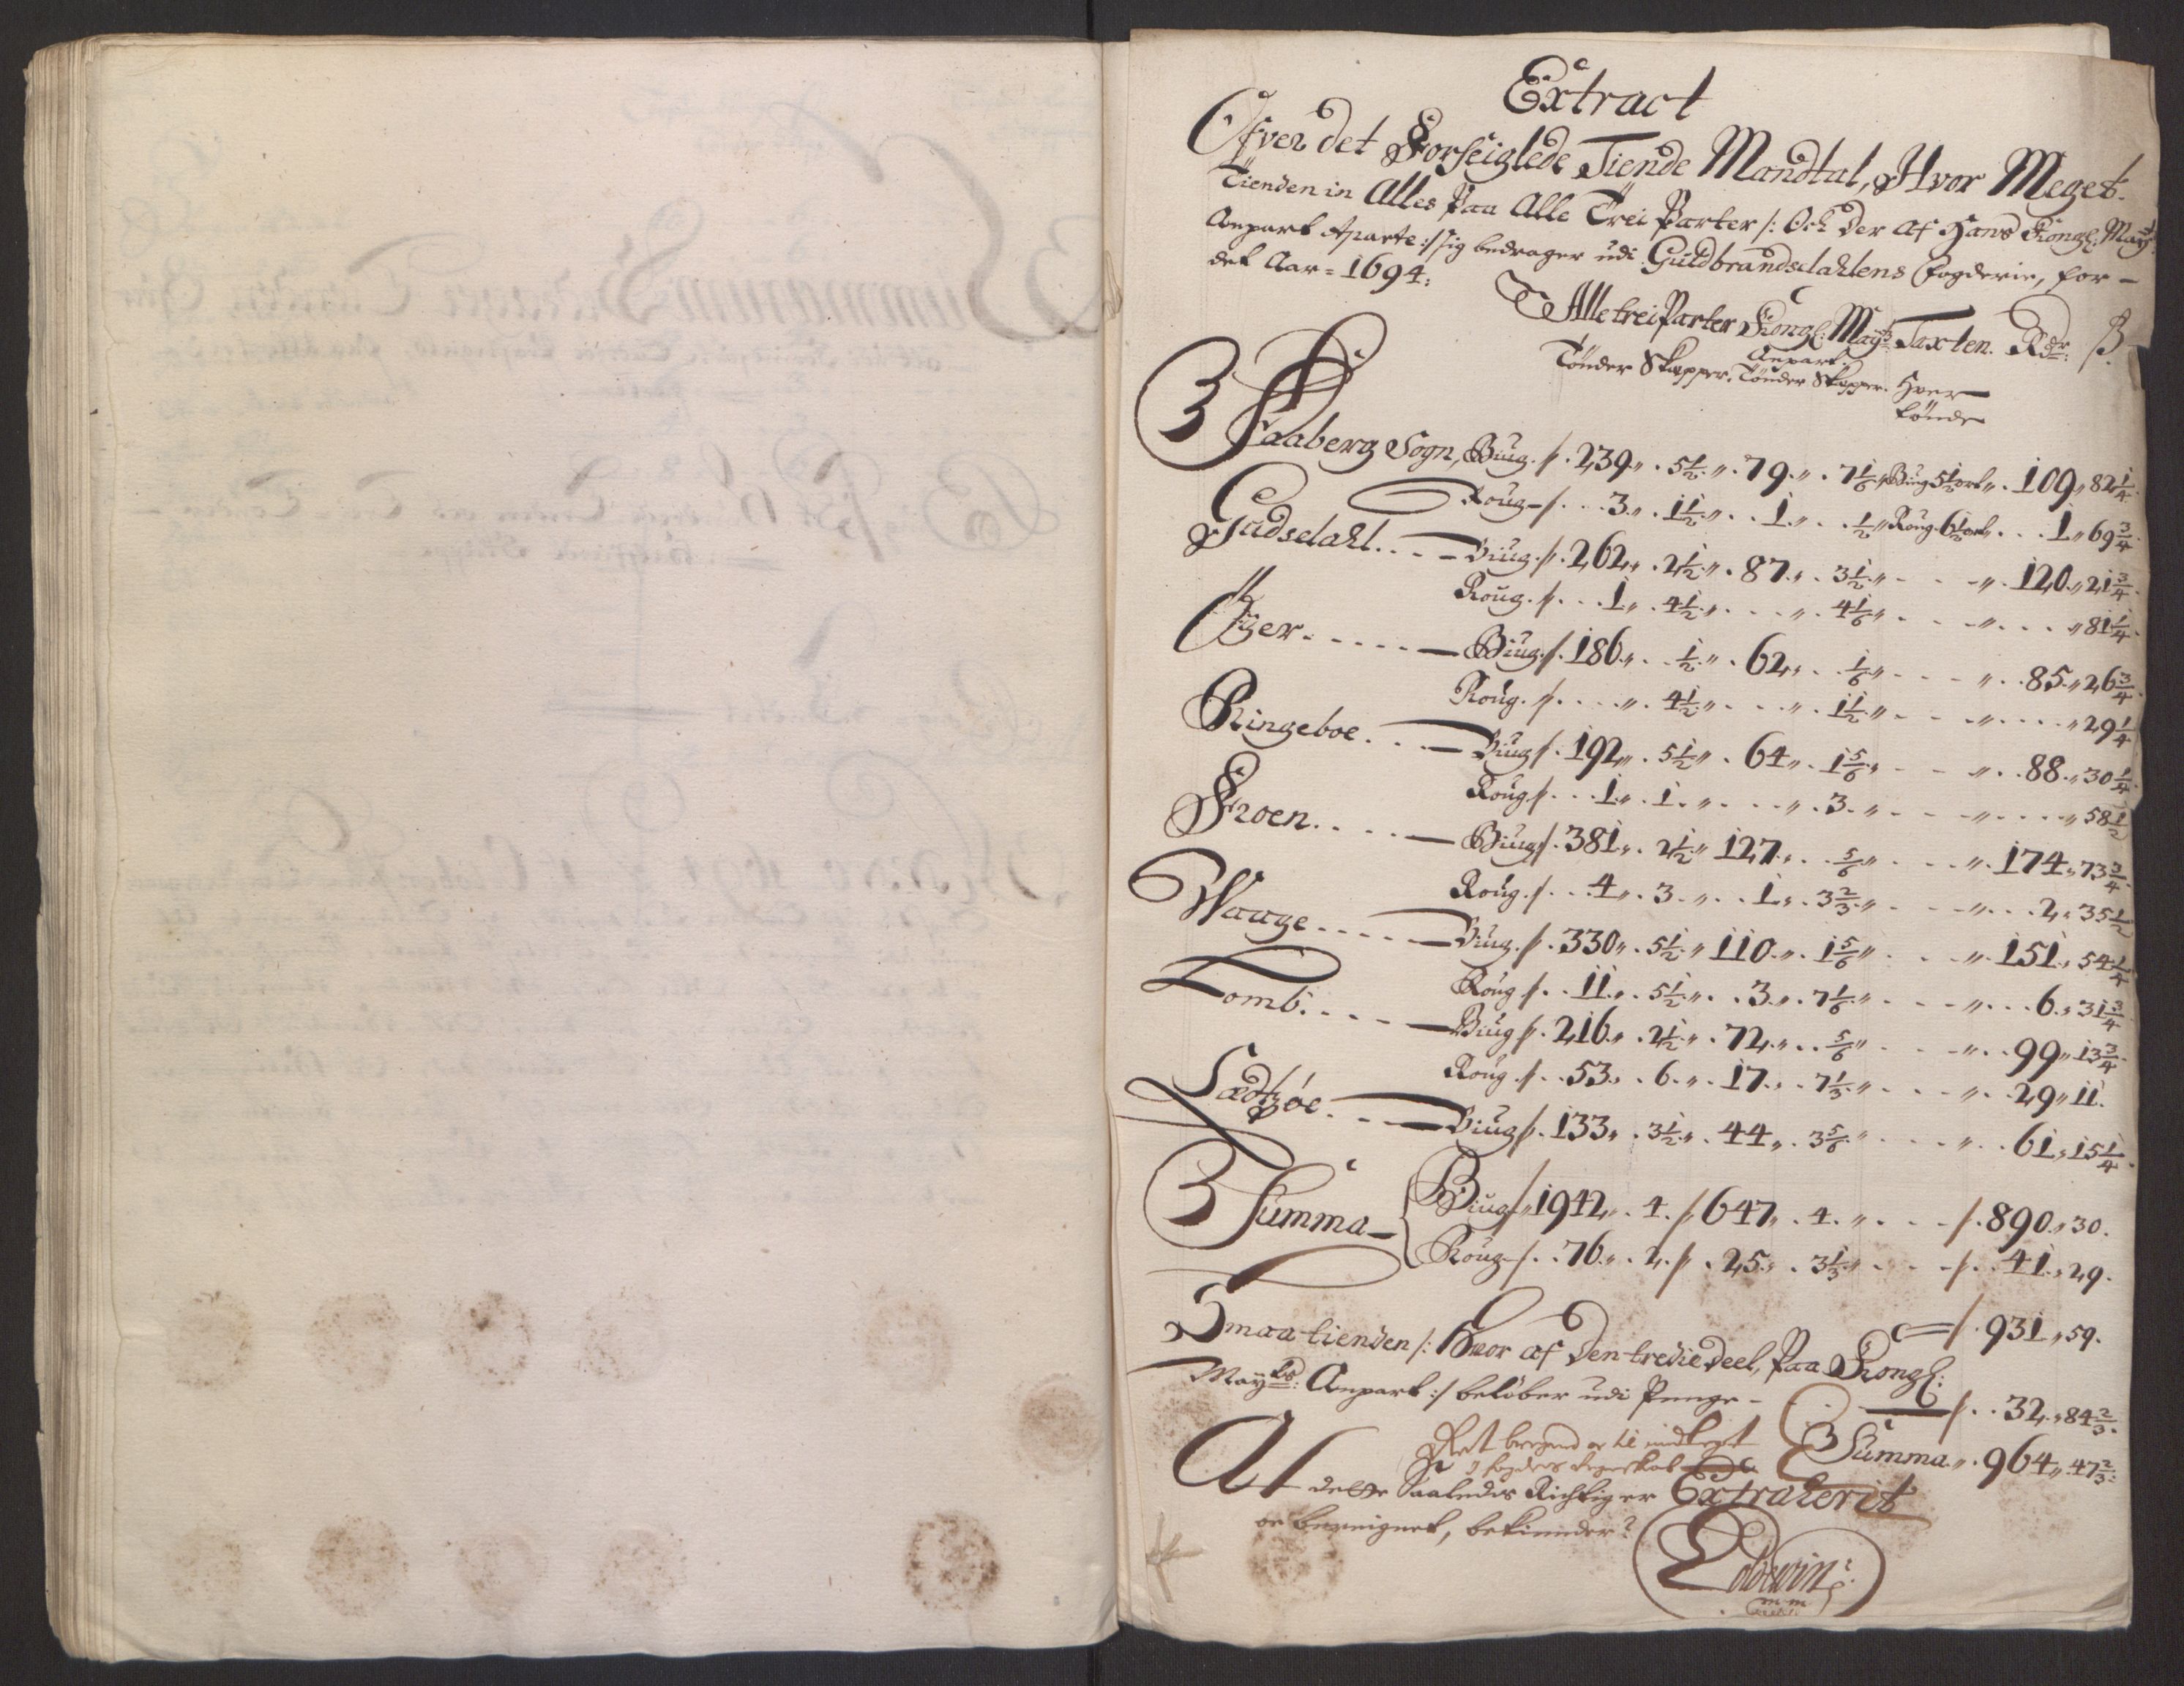 Extract
Ofver det Forseiglede Tiende Mandtal, Hvor Meget
Tienden in Alles paa Alle Trei Parter /: Och der af Hans Kongl: Mayts
Anpart Aparte :/ sig bedrager udi Guldbrandsdahlens fogderie, for –
det Aar = 1694:
Alle trei Parter Kongl: Mayts Taxten. Rdr: ß
Anpart.
Tönder Skepper. Tönder Skepper. Hver
tönde
Faaberg Sogn, Biug. 239. 5½. 79. 7⅙ Biug 5½ ort. 109. 82¼
Roug 3. 1½. 1. ½ Roug. 6½ ort. 1. 69¾
Gudsdahl. Biug. 262. 2½. 87. 3½. 120. 21¾
Roug. 1. 4½. 4⅙. 81¼
Öyer. Biug. 186. ½. 62. ⅙. 85. 26¾
Roug. 4½. 1½. 29¼
Ringeboe. Biug. 192. 5½. 64. 1⅚. 88. 30¼
Roug. 1. 1. 3. 58½
Froen. Biug. 381. 2½. 127. ⅚. 174. 73¾
Roug. 4. 3. 1. 3⅔. 2. 35½
Waage. Biug. 330. 5½. 110. 1⅚. 151. 54¼
Roug. 11. 5½. 3. 7⅙. 6. 31¾
Lomb. Biug. 216. 2½. 72. ⅚. 99. 13¾
Roug. 53. 6. 17. 7⅓. 29. 11.
Biug. 133. 3½. 44. 3⅚. 61. 15¼
Summa Biug 1942. 4. 647. 4. 890. 30.
Roug 76. 2. 25. 3⅓. 41. 29.
931. 59.
Smaa tienden /: Hvor af den tredie deel, paa Kongl:
Mayts: Anpart :/ belöber udi Penge – 32. 84⅔.
Summa. 964. 47⅔:
At dette saaledes Richtig er Extraherit
oc beregnet, bekiender?